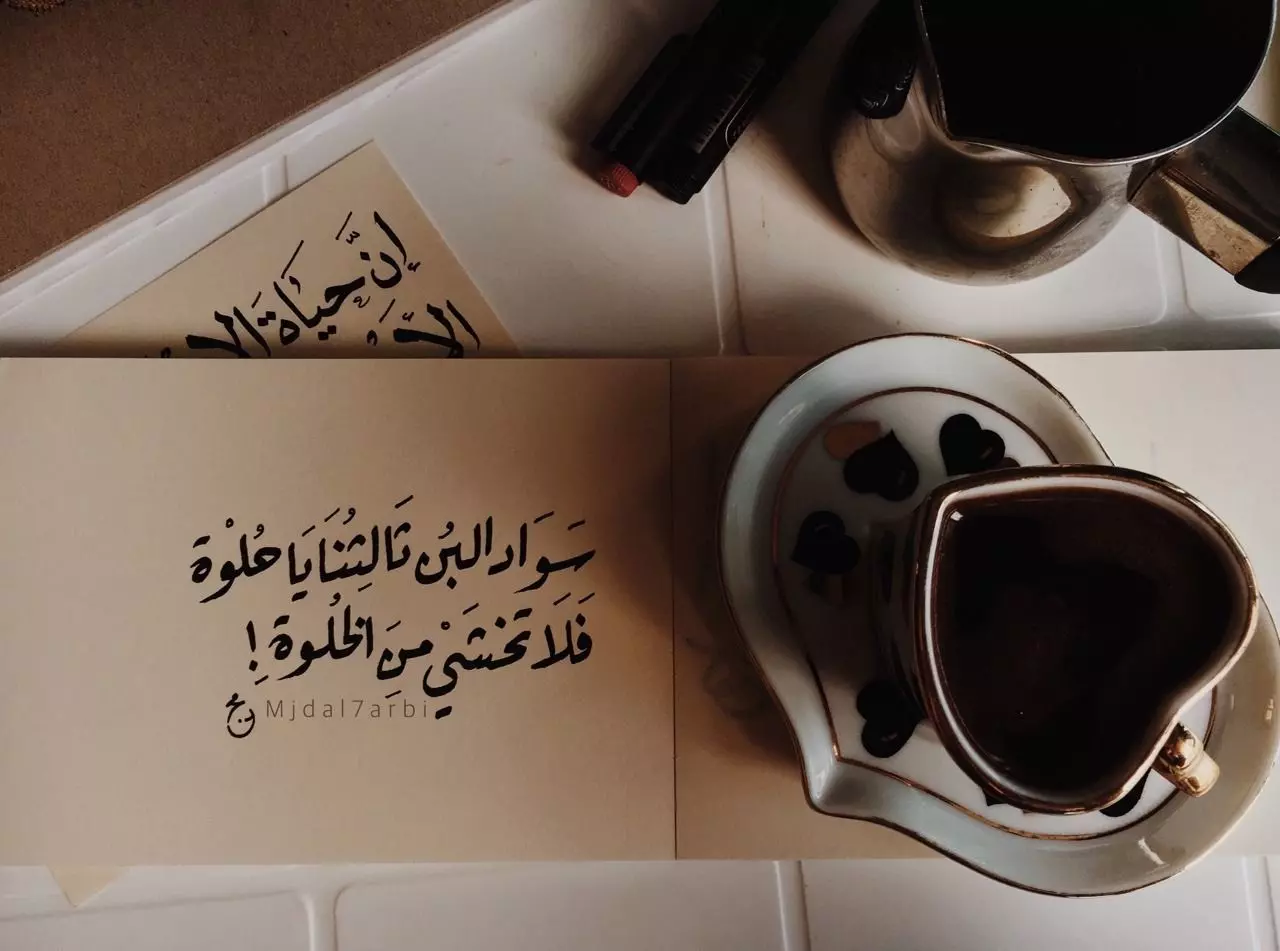 إنَّ حَيَاةَ
سَوَاد البُن ثَالِثُنَا يَا حُلوْة
فَلَا تَخشَيْ مِنَ الخُلوة!
Mjdal7arbi